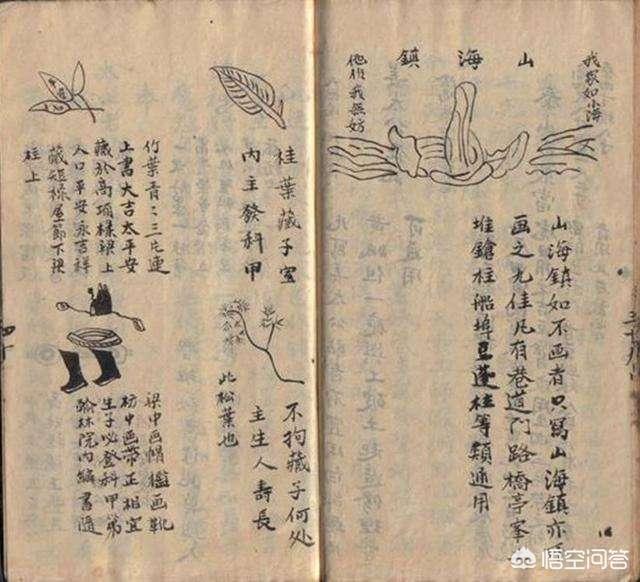 我家如山海
山海鎮
他作我無妨
山海鎮如不画者只寫山海鎮亦
画之尤佳凡有巷道门路橋亭峯
堆鎗柱船埠豆蓬柱等類通用
三十九
桂葉藏子室
内主發科甲
不拘藏子何处
主生人壽長
此松葉也
竹葉青々三片連
上書大吉太平安
藏於高項樑梁上
人口平安永吉祥
藏短椽屋節下梁
柱上
梁中画帽檻画靴
枋中画帶正相宜
生子必登科甲第
翰林院内編書隨
四十
悟空问答